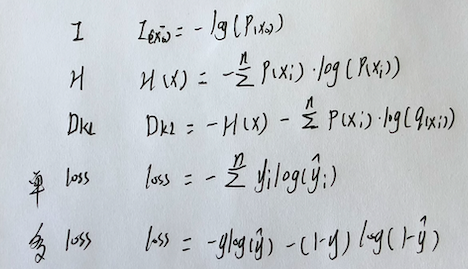 I I(x_i) = - lg(P(x_i))
H H(x) = -∑^n P(x_i)·log(P(x_i))
DKL DKL = -H(x) - ∑^n P(x_i)·log(q(x_i))
单 loss loss = -∑^n y_i log(ŷ_i)
多 loss loss = -ylog(ŷ) -(1-y) log(1-ŷ)